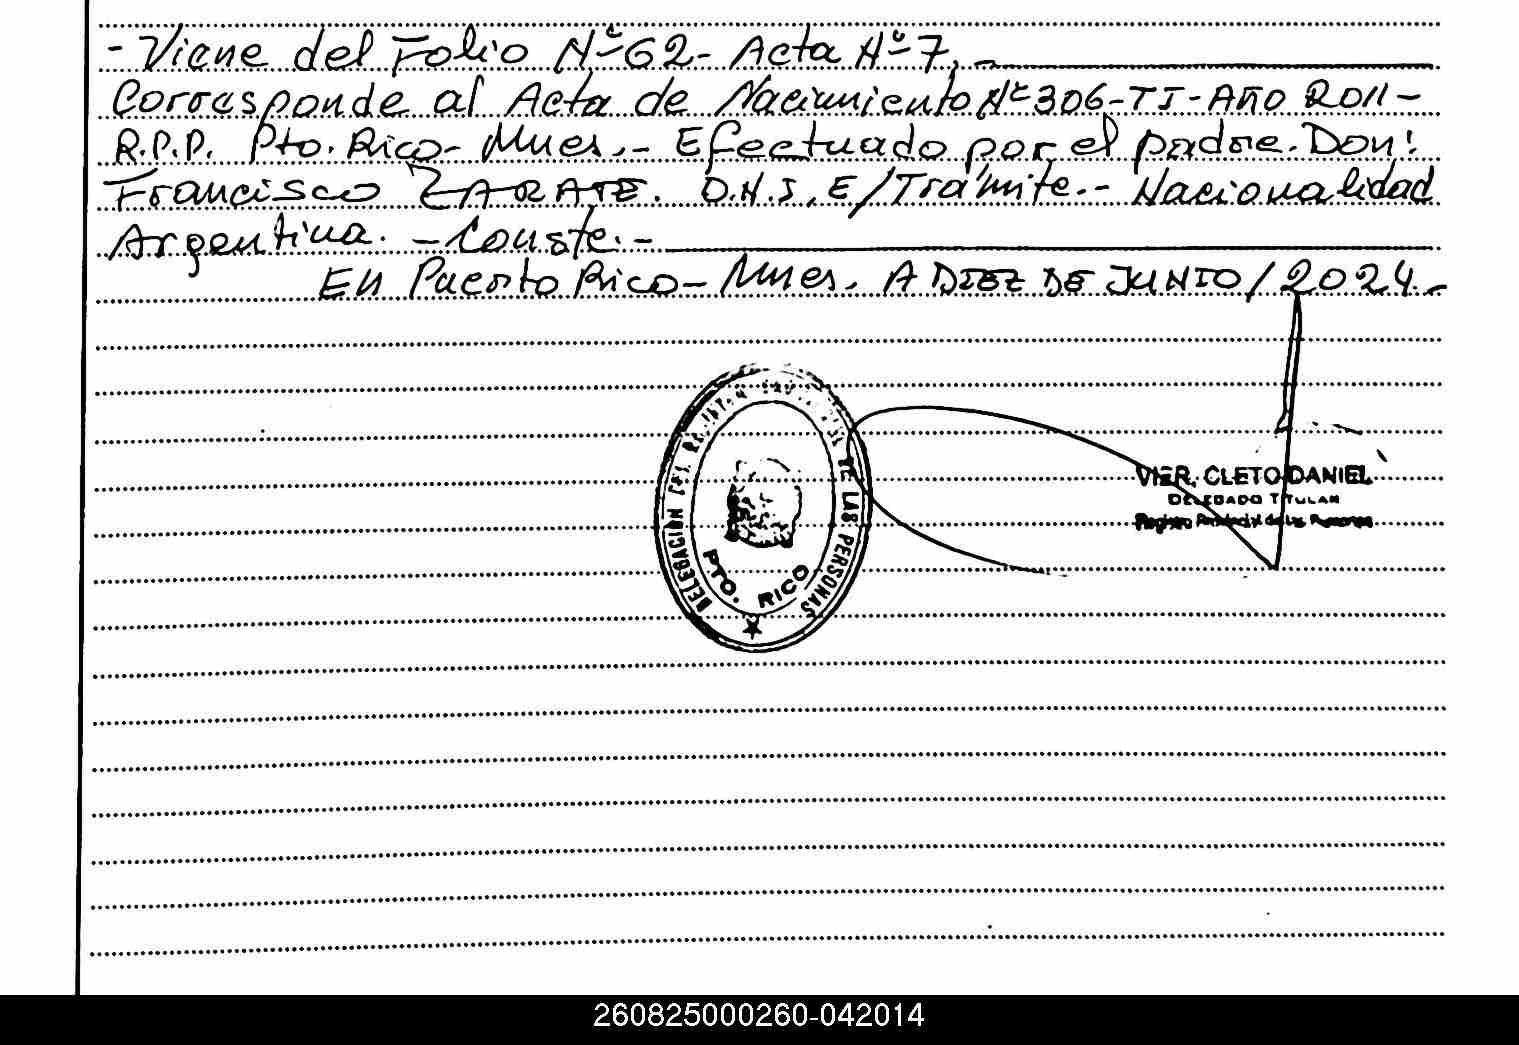 - Viene del Folio Nº 62 - Acta Nº 7. -
Corresponde al Acta de Nacimiento Nº 306 - TI - AÑO 2011 -
R.P.P. Pto. Rico - Mnes. - Efectuado por el padre. Don:
Francisco ZARATE. D.N.I. E/Trámite. - Nacionalidad
Argentina. - Conste. -
En Puerto Rico - Mnes. A DIEZ DE JUNIO / 2024. -
DELEGACION DEL REGISTRO PROVINCIAL DE LAS PERSONAS
PTO. RICO
VIER, CLETO DANIEL
DELEGADO TITULAR
Registro Provincial de las Personas
260825000260-042014